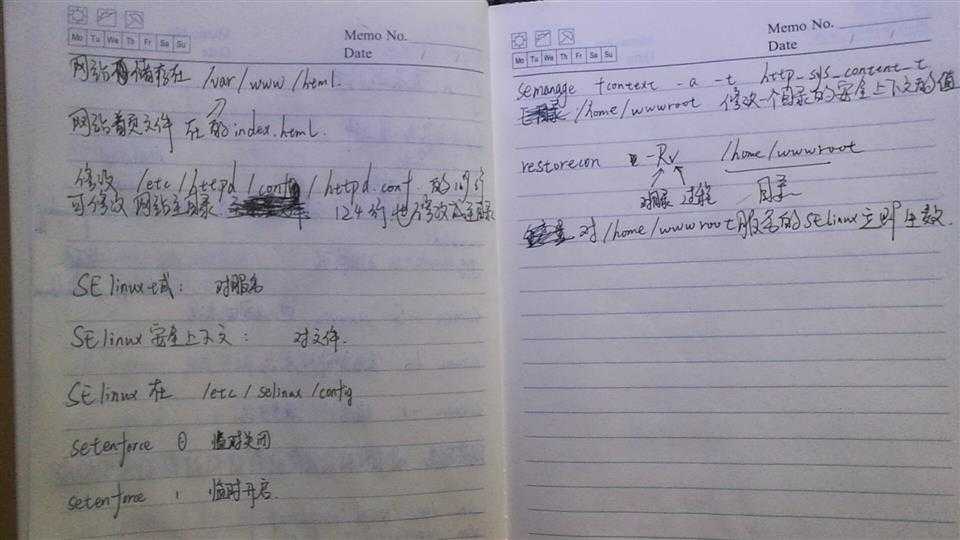 Mo Tu We Th Fr Sa Su
Memo No.
Date / /
网站储存在 /var/www/html.
网站首页文件 在 的 index.html.
修改 /etc/httpd/conf/httpd.conf 的119行
可修改 网站主目录 124行也修改成主目录
SElinux域: 对服务
SElinux 安全上下文: 对文件.
SElinux 在 /etc/selinux/config
setenforce 0 临时关闭
setenforce 1 临时开启.
Mo Tu We Th Fr Sa Su
Memo No.
Date / /
semanage fcontext -a -t http_sys_content_t
/home/wwwroot 修改一个目录的安全上下文的值
restorecon -Rv /home/wwwroot
对目录 过程 目录
对 /home/wwwroot 服务的SElinux立即生效.